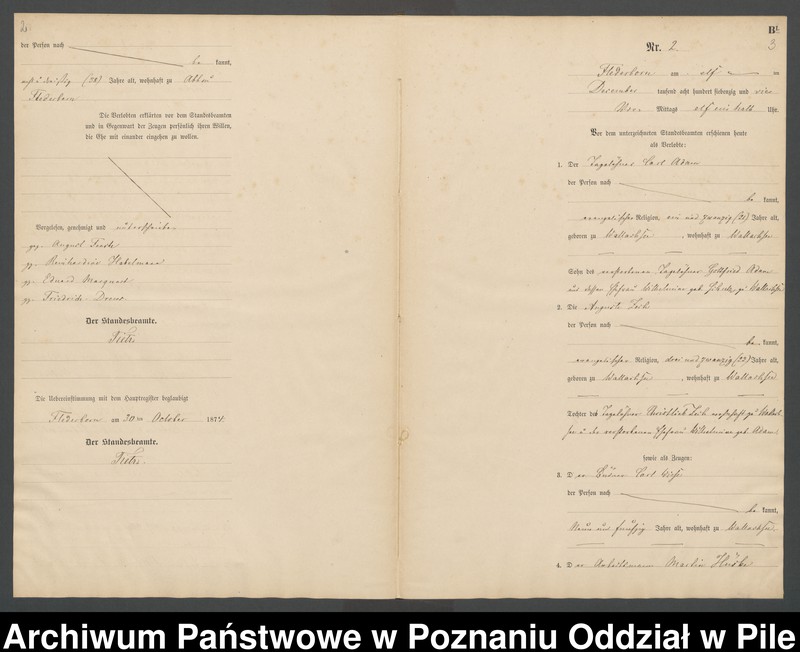 der Person nach
be kannt,
(38) Jahre alt, wohnhaft zu
Flederborn
Die Verlobten erklärten vor dem Standesbeamten
und in Gegenwart der Zeugen persönlich ihren Willen,
die Ehe mit einander eingehen zu wollen.
Vorgelesen, genehmigt und unterschrieben
gez. August
gz.
gz. Eduard Marquart
gz. Friedrich
Der Standesbeamte.
Die Uebereinstimmung mit dem Hauptregister beglaubigt
Flederborn am 30ten October 1874.
Der Standesbeamte.
B.
3
Nr. 2.
Flederborn am elf ten
December tausend acht hundert siebenzig und vier
Vor Mittags elf ein halb Uhr.
Vor dem unterzeichneten Standesbeamten erschienen heute
als Verlobte:
1. Der Tagelöhner Carl Adam
der Person nach
be kannt,
evangelischer Religion, ein und zwanzig (21) Jahre alt,
geboren zu Wallachsee, wohnhaft zu Wallachsee
Sohn des verstorbenen Tagelöhner Gottfried Adam
und dessen Ehefrau Wilhelmine geb. zu Wallachsee
2. Die Auguste
der Person nach
be kannt,
evangelischer Religion, drei und zwanzig (23) Jahre alt,
geboren zu Wallachsee, wohnhaft zu Wallachsee
Tochter des Tagelöhner wohnhaft zu Wallach-
see u. der verstorbenen Ehefrau Wilhelmine geb. Adam.
sowie als Zeugen:
3. Der Carl
der Person nach
be kannt,
neun und fünfzig Jahre alt, wohnhaft zu Wallachsee
4. Der Arbeitsmann Martin
Archiwum Państwowe w Poznaniu Oddział w Pile